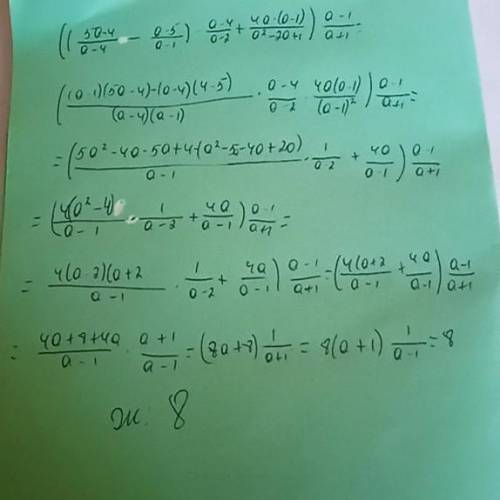 ((5a-4/a-4 - a-5/a-1) a-4/a-2 + 4a·(a-1)/a²-2a+1) a-1/a+1 =
((a-1)(5a-4)-(a-4)(4-5)/(a-4)(a-1) · a-4/a-2 · 4a(a-1)/(a-1)²) a-1/a+1 =
= (5a²-4a-5a+4-(a²-5-4a+20)/a-1 · 1/a-2 + 4a/a-1) a-1/a+1
= (4(a²-4)/a-1 · 1/a-2 + 4a/a-1) a-1/a+1 =
= 4(a-2)(a+2/a-1 · 1/a-2 + 4a/a-1) a-1/a+1 = (4(a+2/a-1 + 4a/a-1) a-1/a+1
= 4a+8+4a/a-1 · a+1/a-1 = (8a+8) 1/a+1 = 8(a+1) 1/a-1 = 8
Ж: 8